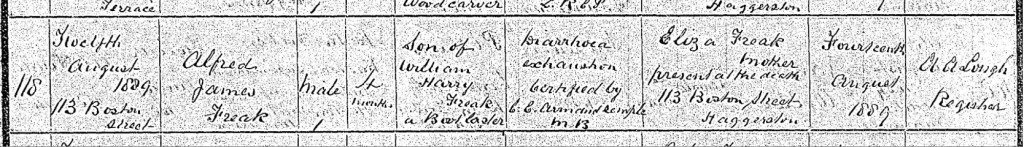 Terrace
Woodcarver
L.R.C.P.
Haggerston
118
Twelfth
August
1889
113 Boston
Street
Alfred
James
Freak
male
months
Son of
William
Harry
Freak
a Boot laster
Diarrhoea
exhaustion
Certified by
C. E. Armand Semple
M.B
Eliza Freak
mother
present at the death
113 Boston Street
Haggerston
Fourteenth
August
1889
Registrar